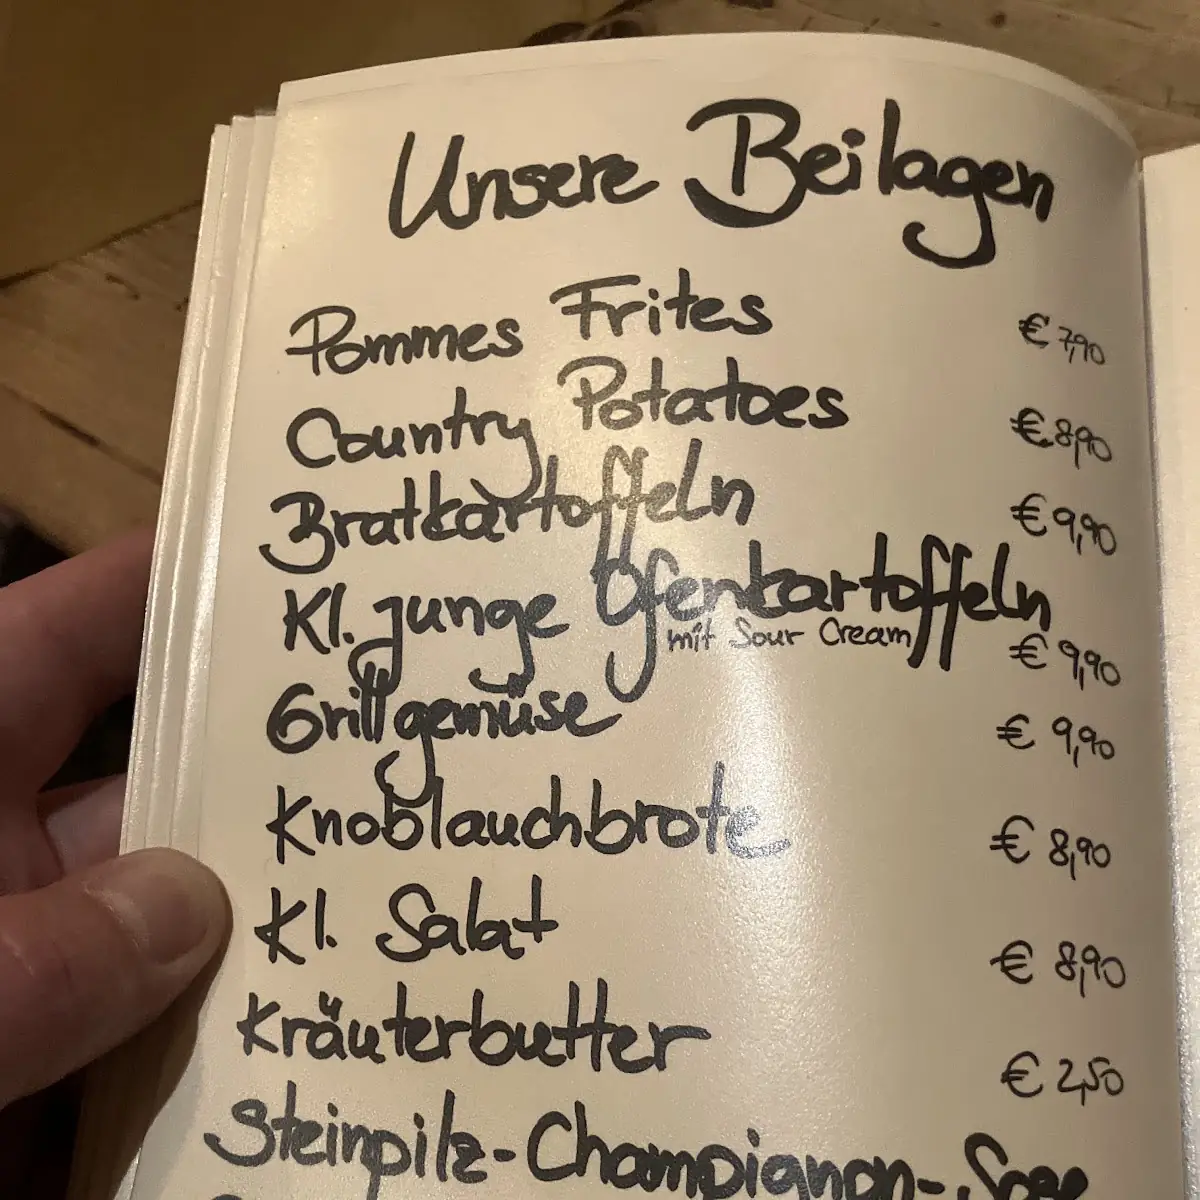 Unsere Beilagen
Pommes Frites € 7,90
Country Potatoes € 8,90
Bratkartoffeln € 9,90
Kl. junge Ofenkartoffeln
mit Sour Cream € 9,90
Grillgemüse € 9,90
Knoblauchbrote € 8,90
Kl. Salat € 8,90
Kräuterbutter € 2,50
Steinpilz-Champignon-